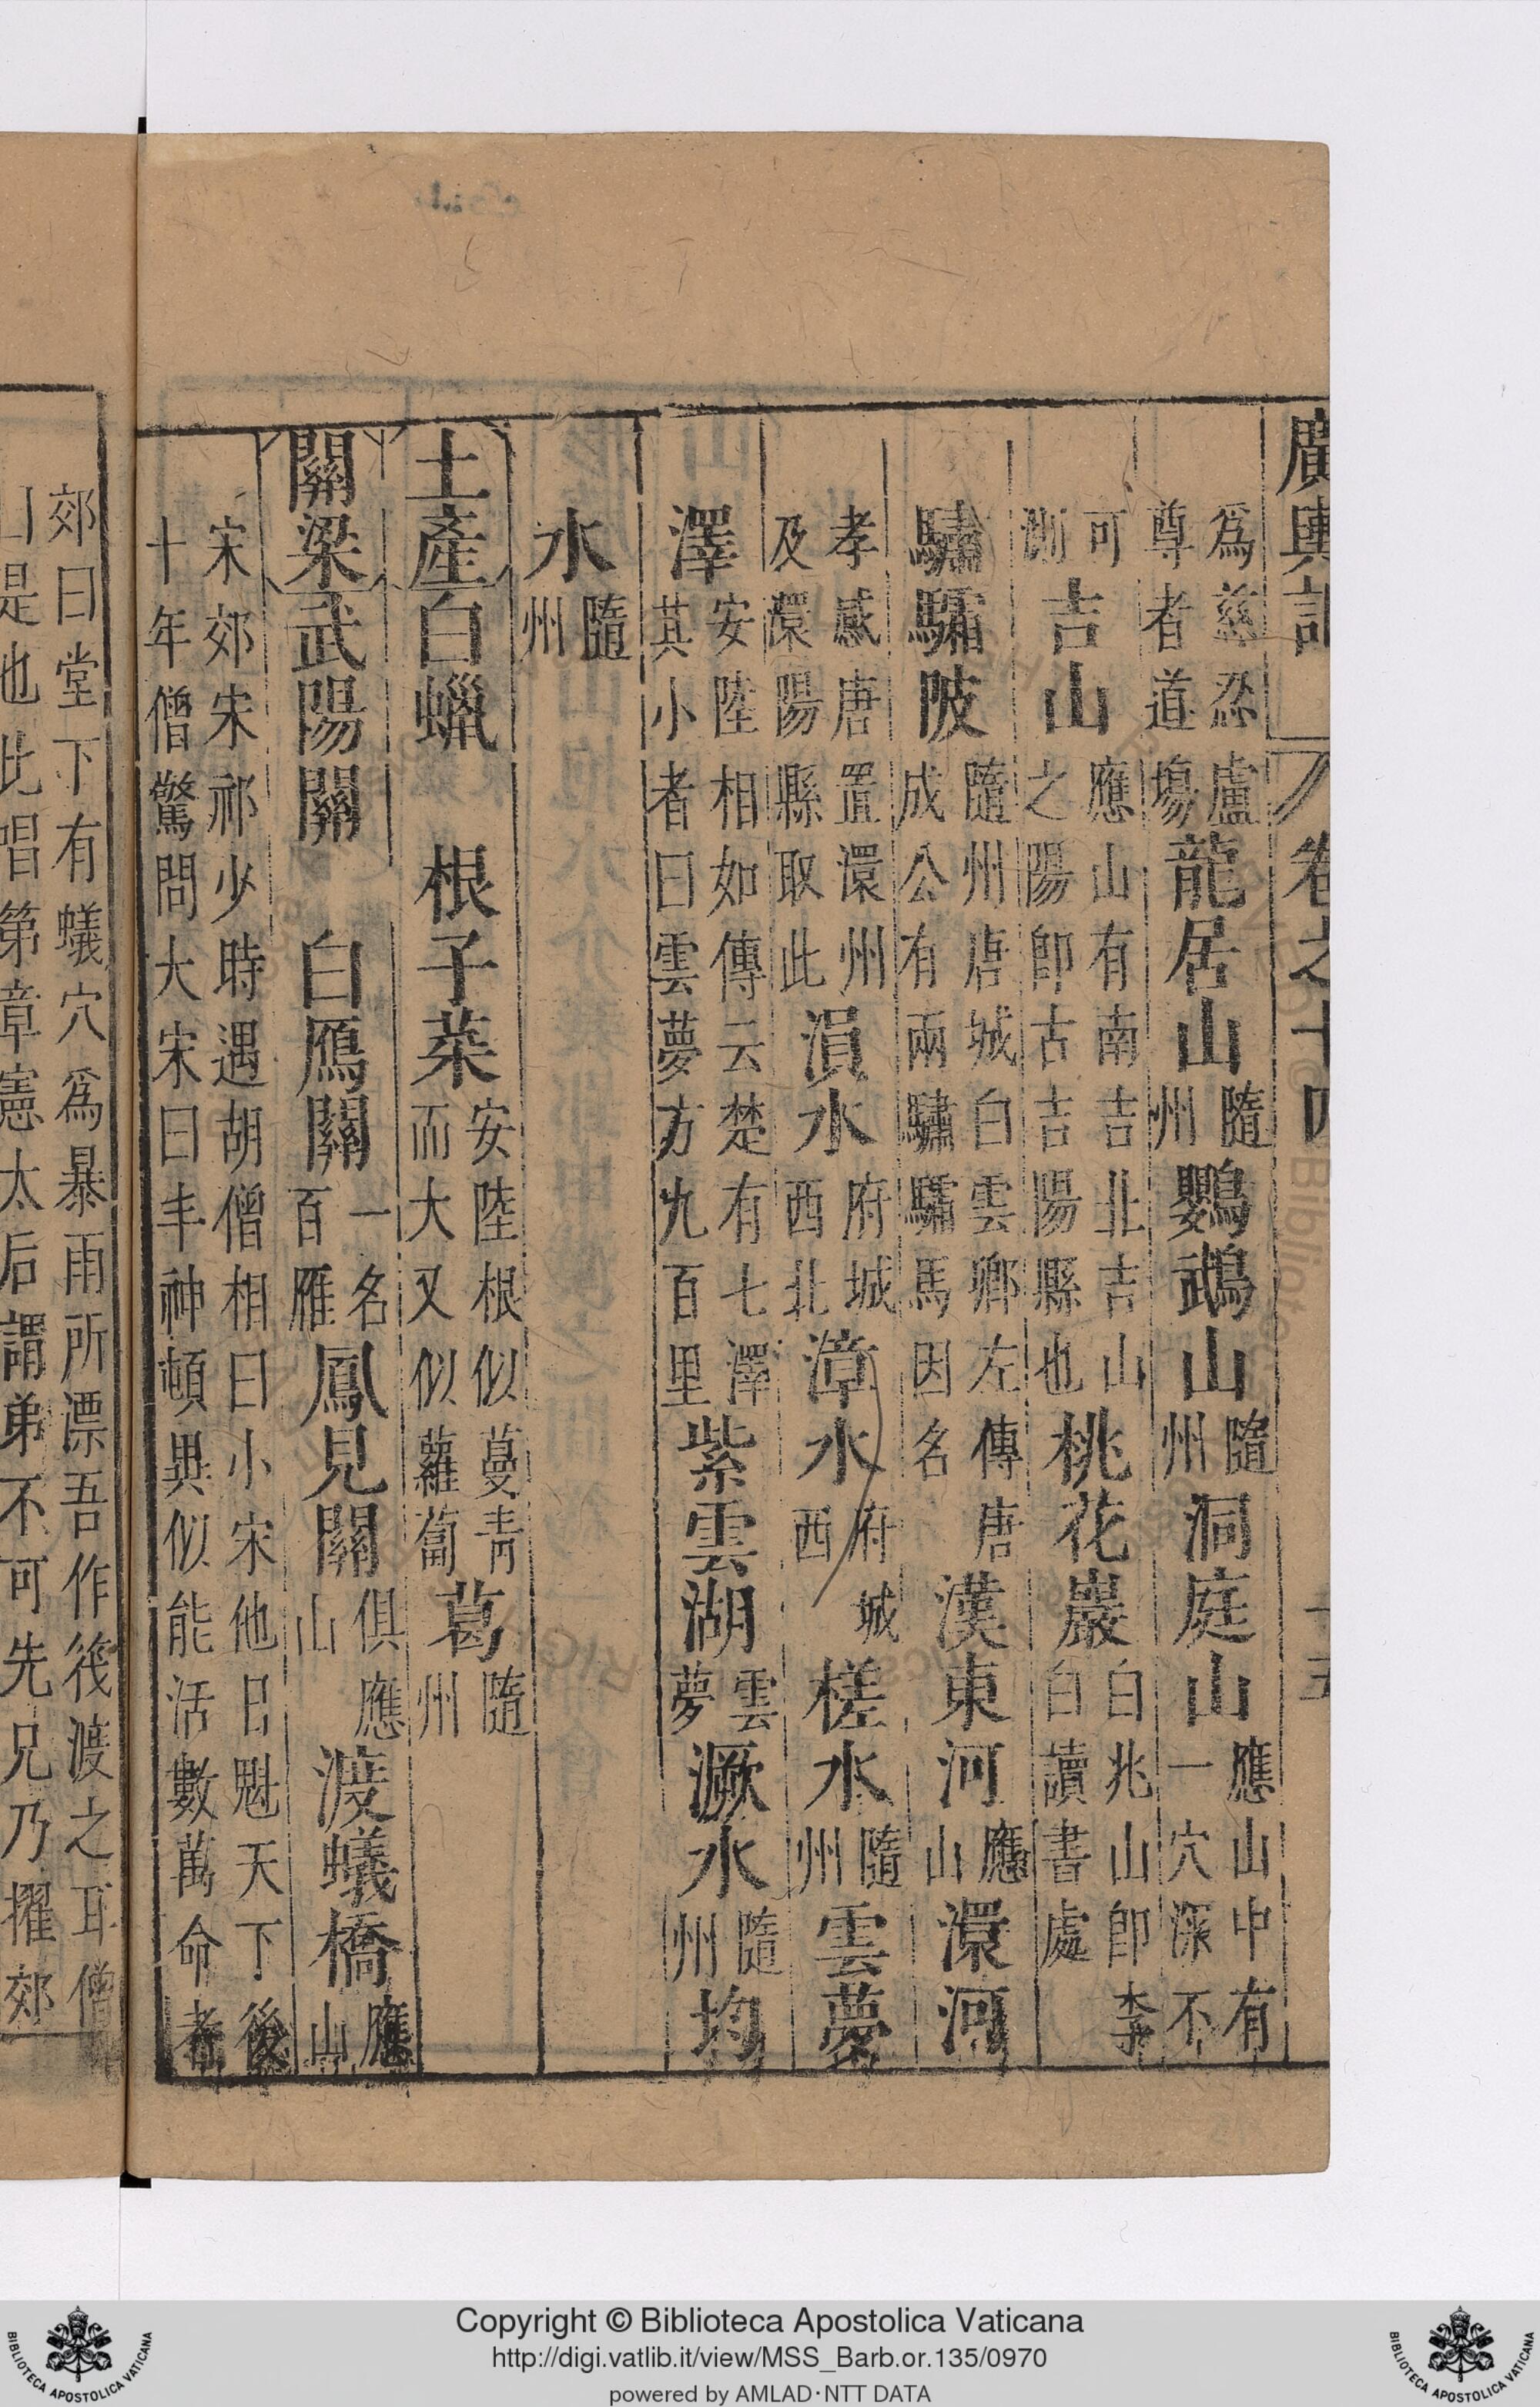 廣輿記 卷之十四
爲慈忍盧
尊者道塲龍居山隨
州鸚鵡山隨
州洞庭山應山中有
一穴深不
可
測吉山應山有南吉北吉山
之陽卽古吉陽縣也桃花巖白兆山卽李
白讀書處
驌驦陂隨州唐城白雲鄉左傳唐
成公有兩驌驦馬因名漢東河應
山澴河
孝感唐置澴州
及澴陽縣取此溳水府城
西北漳水府城
西槎水隨
州雲夢
澤安陸相如傳云楚有七澤
其小者曰雲夢方九百里紫雲湖雲
夢㵐水隨
州均
水隨
州
土產白蠟 根子菜安陸根似蔓青
而大又似蘿蔔葛隨
州
關梁武陽關 白鴈關一名
百雁鳳見關俱應
山渡蟻橋應
山
宋郊宋祁少時遇胡僧相曰小宋他日魁天下後
十年僧驚問大宋曰丰神頓異似能活數萬命者
郊曰堂下有蟻穴爲暴雨所漂吾作筏渡之耳僧
曰是也此唱第章憲太后謂弟不可先兄乃擢郊
Copyright © Biblioteca Apostolica Vaticana
http://digi.vatlib.it/view/MSS_Barb.or.135/0970
powered by AMLAD·NTT DATA
BIBLIOTECA APOSTOLICA VATICANA
BIBLIOTECA APOSTOLICA VATICANA